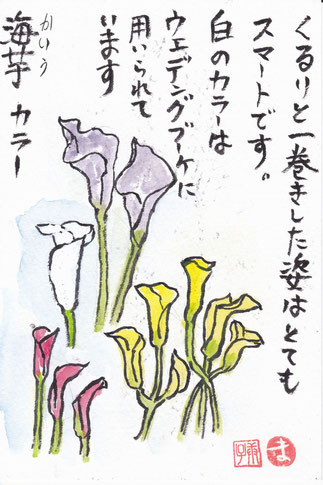 くるりと一巻きした姿はとても
スマートです。
白のカラーは
ウエディングブーケに
用いられて
います
かいう
海芋 カラー
ま